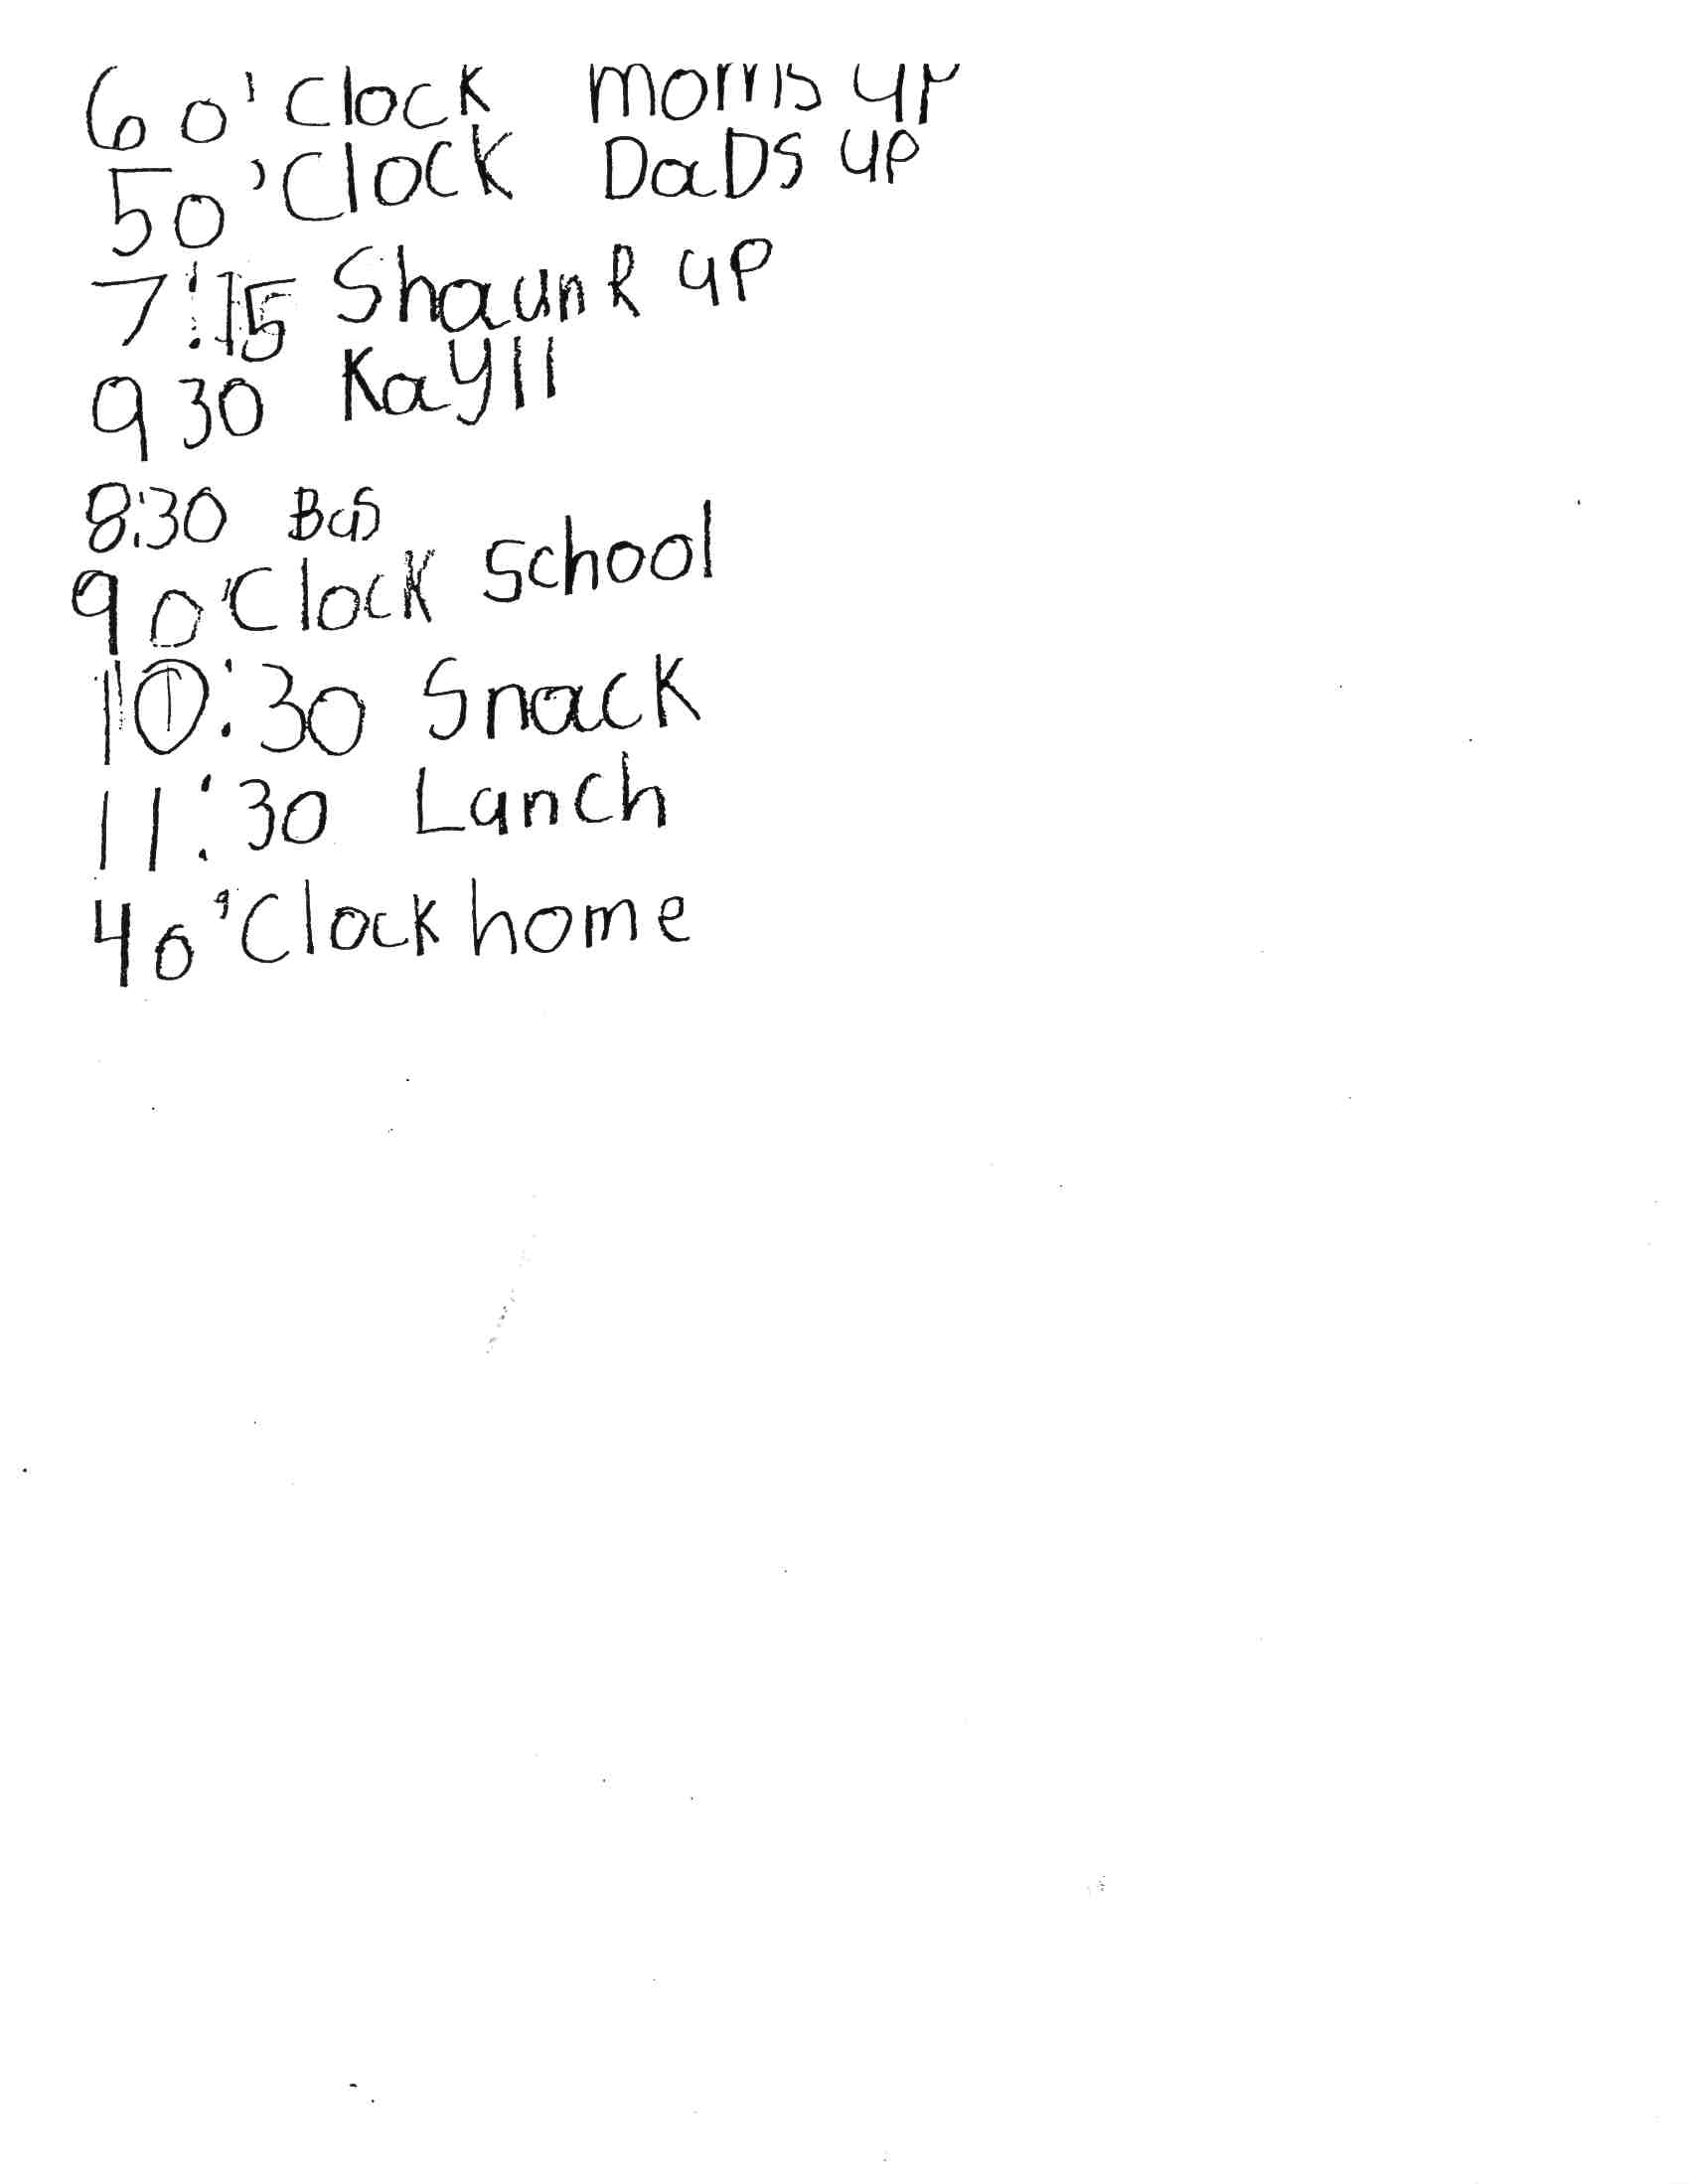 6 o'Clock moms up
5 o'Clock DaDs up
7:15 ShaunR up
9 30 Kayll
8:30 Bus
9 o'Clock School
10:30 Snack
11:30 Lunch
4 o'Clock home